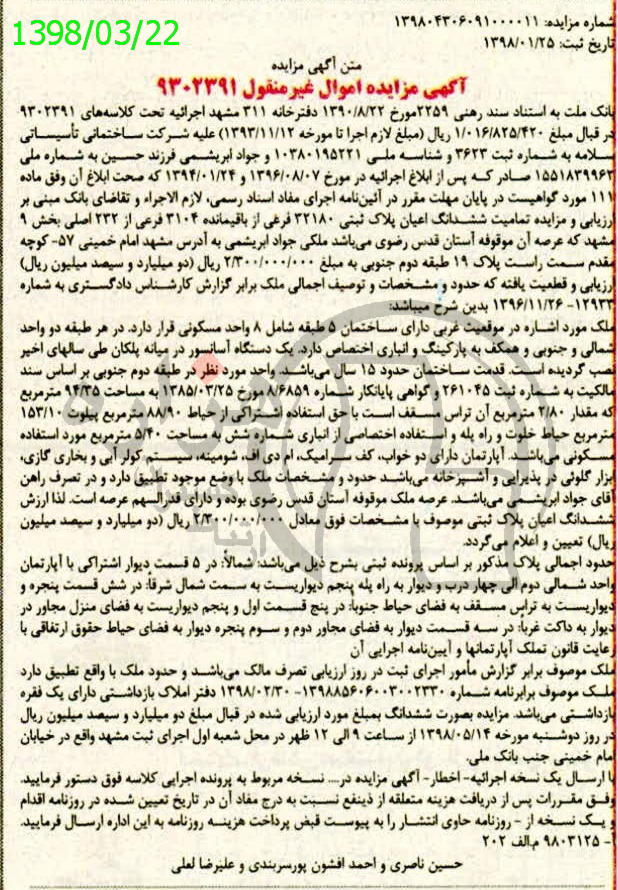 شماره مزایده: ۱۳۹۸۰۴۳۰۶۰۹۱۰۰۰۰۱۱
1398/03/22
تاریخ ثبت: ۱۳۹۸/۰۱/۲۵
متن آگهی مزایده
آگهی مزایده اموال غیرمنقول ۹۳۰۲۳۹۱
بانک ملت به استناد سند رهنی ۲۲۵۹مورخ ۱۳۹۰/۸/۲۲ دفترخانه ۳۱۱ مشهد اجرائیه تحت کلاسه‌های ۹۳۰۲۳۹۱
در قبال مبلغ ۱/۰۱۶/۸۲۵/۴۲۰ ریال (مبلغ لازم اجرا تا مورخه ۱۳۹۳/۱۱/۱۲) علیه شرکت ساختمانی تأسیساتی
سلامه به شماره ثبت ۳۶۲۳ و شناسه ملی ۱۰۳۸۰۱۹۵۲۲۱ و جواد ابریشمی فرزند حسین به شماره ملی
۱۵۵۱۸۳۹۹۶۲ صادر که پس از ابلاغ اجرائیه در مورخ ۱۳۹۶/۰۸/۰۷ و ۱۳۹۴/۰۱/۲۴ که صحت ابلاغ آن وفق ماده
۱۱۱ مورد گواهیست در پایان مهلت مقرر در آئین‌نامه اجرای مفاد اسناد رسمی، لازم الاجراء و تقاضای بانک مبنی بر
ارزیابی و مزایده تمامیت ششدانگ اعیان پلاک ثبتی ۳۲۱۸۰ فرعی از باقیمانده ۳۱۰۴ فرعی از ۲۳۲ اصلی بخش ۹
مشهد که عرصه آن موقوفه آستان قدس رضوی می‌باشد ملکی جواد ابریشمی به آدرس مشهد امام خمینی ۵۷- کوچه
مقدم سمت راست پلاک ۱۹ طبقه دوم جنوبی به مبلغ ۲/۳۰۰/۰۰۰/۰۰۰ ریال (دو میلیارد و سیصد میلیون ریال)
ارزیابی و قطعیت یافته که حدود و مشخصات و توصیف اجمالی ملک برابر گزارش کارشناس دادگستری به شماره
۱۲۹۳۳- ۱۳۹۶/۱۱/۲۶ بدین شرح میباشد:
ملک مورد اشاره در موقعیت غربی دارای ساختمان ۵ طبقه شامل ۸ واحد مسکونی قرار دارد. در هر طبقه دو واحد
شمالی و جنوبی و همکف به پارکینگ و انباری اختصاص دارد. یک دستگاه آسانسور در میانه پلکان طی سالهای اخیر
نصب گردیده است. قدمت ساختمان حدود ۱۵ سال می‌باشد. واحد مورد نظر در طبقه دوم جنوبی بر اساس سند
مالکیت به شماره ثبت ۲۶۱۰۴۵ و گواهی پایانکار شماره ۸/۶۸۵۹ مورخ ۱۳۸۵/۰۳/۲۵ به مساحت ۹۴/۳۵ مترمربع
که مقدار ۲/۸۰ مترمربع آن تراس مسقف است با حق استفاده اشتراکی از حیاط ۸۸/۹۰ مترمربع پیلوت ۱۵۳/۱۰
مترمربع حیاط خلوت و راه پله و استفاده اختصاصی از انباری شماره شش به مساحت ۵/۴۰ مترمربع مورد استفاده
مسکونی می‌باشد. آپارتمان دارای دو خواب، کف سرامیک، ام دی اف، شومینه، سیستم کولر آبی و بخاری گازی،
ابزار گلوئی در پذیرایی و آشپزخانه می‌باشد حدود و مشخصات ملک با وضع موجود تطبیق دارد و در تصرف راهن
آقای جواد ابریشمی می‌باشد. عرصه ملک موقوفه آستان قدس رضوی بوده و دارای قدرالسهم عرصه است. لذا ارزش
ششدانگ اعیان پلاک ثبتی موصوف با مشخصات فوق معادل ۲/۳۰۰/۰۰۰/۰۰۰ ریال (دو میلیارد و سیصد میلیون
ریال) تعیین و اعلام می‌گردد.
حدود اجمالی پلاک مذکور بر اساس پرونده ثبتی بشرح ذیل می‌باشد: شمالاً: در ۵ قسمت دیوار اشتراکی با آپارتمان
واحد شمالی دوم الی چهار درب و دیوار به راه پله پنجم دیواریست به سمت شمال شرقاً: در شش قسمت پنجره و
دیواریست به تراس مسقف به فضای حیاط جنوباً: در پنج قسمت اول و پنجم دیواریست به فضای منزل مجاور در
دیوار به داکت غرباً: در سه قسمت دیوار به فضای مجاور دوم و سوم پنجره دیوار به فضای حیاط حقوق ارتفاقی با
رعایت قانون تملک آپارتمانها و آیین‌نامه اجرایی آن
ملک موصوف برابر گزارش مأمور اجرای ثبت در روز ارزیابی تصرف مالک می‌باشد و حدود ملک با واقع تطبیق دارد
ملک موصوف برابرنامه شماره ۱۳۹۸۸۵۶۰۶۰۰۳۰۰۲۳۳۰- ۱۳۹۸/۰۲/۳۰ دفتر املاک بازداشتی دارای یک فقره
بازداشتی می‌باشد. مزایده بصورت ششدانگ بمبلغ مورد ارزیابی شده در قبال مبلغ دو میلیارد و سیصد میلیون ریال
در روز دوشنبه مورخه ۱۳۹۸/۰۵/۱۴ از ساعت ۹ الی ۱۲ ظهر در محل شعبه اول اجرای ثبت مشهد واقع در خیابان
امام خمینی جنب بانک ملی.
با ارسال یک نسخه اجرائیه- اخطار- آگهی مزایده در.... نسخه مربوط به پرونده اجرایی کلاسه فوق دستور فرمایید.
وفق مقررات پس از دریافت هزینه متعلقه از ذینفع نسبت به درج مفاد آن در تاریخ تعیین شده در روزنامه اقدام
و یک نسخه از - روزنامه حاوی انتشار را به پیوست قبض پرداخت هزینه روزنامه به این اداره ارسال فرمایید.
- ۹۸۰۳۱۲۵ م‌الف ۲۰۲
حسین ناصری و احمد افشون پورسربندی و علیرضا لعلی